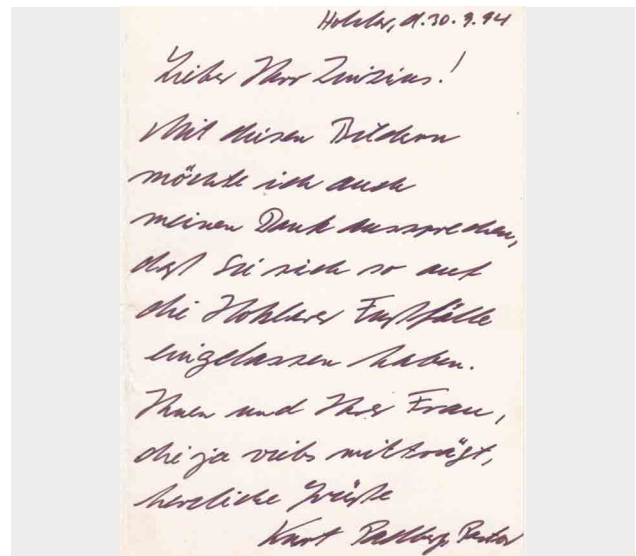 d. 30.9.94
Lieber Herr
Mit diesen Bildern
möchte ich auch
meinen Dank aussprechen,
daß Sie sich so auf
die
eingelassen haben.
Ihnen und Ihrer Frau,
die ja vieles mitträgt,
herzliche Grüße
Kurt Pastor